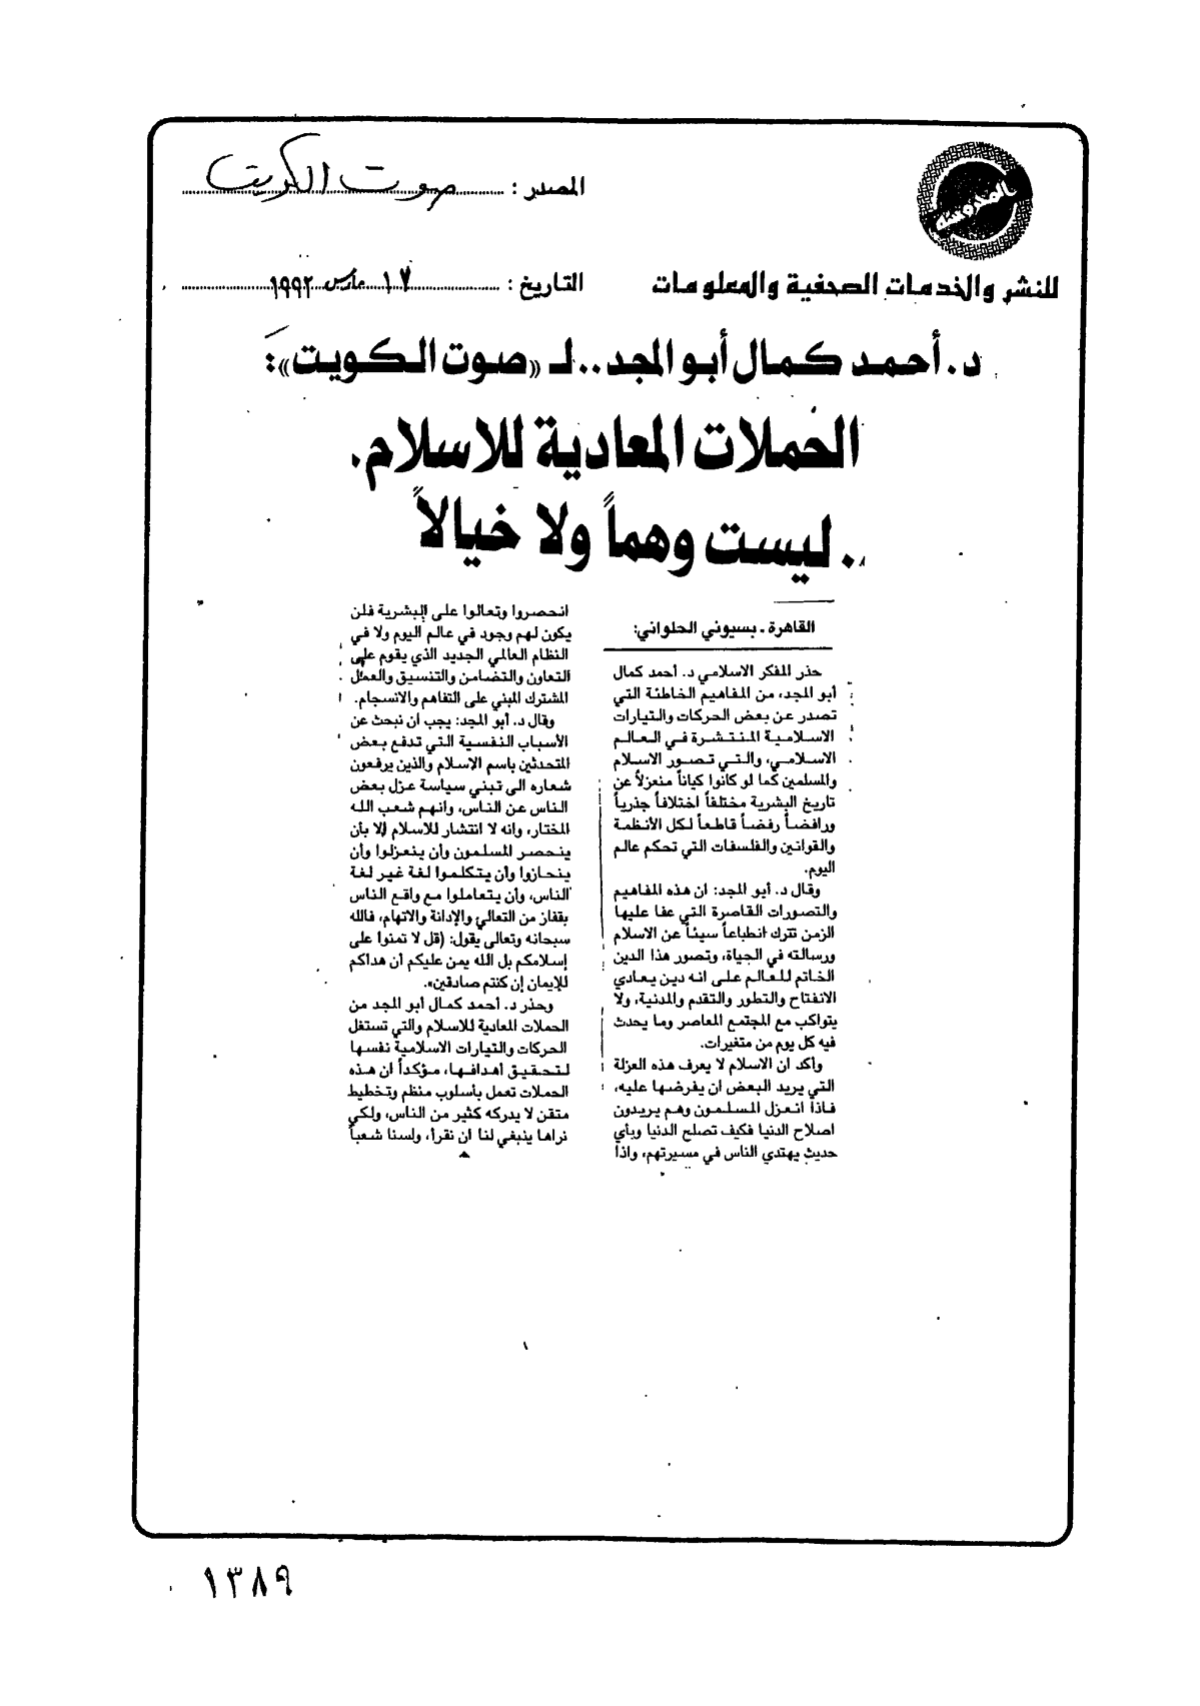 المصدر : صوت الكويت
للنشر والخدمات الصحفية والمعلومات
التاريخ : ١٧ مارس ١٩٩٢
د. أحمد كمال أبو المجد.. لـ «صوت الكويت»:
الحملات المعادية للاسلام.
.. ليست وهماً ولا خيالاً
القاهرة ـ بسيوني الحلواني:
حذر المفكر الاسلامي د. أحمد كمال
أبو المجد، من المفاهيم الخاطئة التي
تصدر عن بعض الحركات والتيارات
الاسلامية المنتشرة في العالم
الاسلامي، والتي تصور الاسلام
والمسلمين كما لو كانوا كياناً منعزلاً عن
تاريخ البشرية مختلفاً اختلافاً جذرياً
ورافضاً رفضاً قاطعاً لكل الأنظمة
والقوانين والفلسفات التي تحكم عالم
اليوم.
وقال د. أبو المجد: ان هذه المفاهيم
والتصورات القاصرة التي عفا عليها
الزمن تترك انطباعاً سيئاً عن الاسلام
ورسالته في الحياة، وتصور هذا الدين
الخاتم للعالم على انه دين يعادي
الانفتاح والتطور والتقدم والمدنية، ولا
يتواكب مع المجتمع المعاصر وما يحدث
فيه كل يوم من متغيرات.
وأكد ان الاسلام لا يعرف هذه العزلة
التي يريد البعض ان يفرضها عليه،
فاذا انعزل المسلمون وهم يريدون
اصلاح الدنيا فكيف تصلح الدنيا وبأي
حديث يهتدي الناس في مسيرتهم، واذا
انحصروا وتعالوا على البشرية فلن
يكون لهم وجود في عالم اليوم ولا في
النظام العالمي الجديد الذي يقوم على
التعاون والتضامن والتنسيق والعمل
المشترك المبني على التفاهم والانسجام.
وقال د. أبو المجد: يجب ان نبحث عن
الأسباب النفسية التي تدفع بعض
المتحدثين باسم الإسلام والذين يرفعون
شعاره الى تبني سياسة عزل بعض
الناس عن الناس، وانهم شعب الله
المختار، وانه لا انتشار للاسلام إلا بأن
ينحصر المسلمون وأن ينعزلوا وأن
ينحازوا وأن يتكلموا لغة غير لغة
الناس، وأن يتعاملوا مع واقع الناس
بقفاز من التعالي والإدانة والاتهام، فالله
سبحانه وتعالى يقول: (قل لا تمنوا على
إسلامكم بل الله يمن عليكم أن هداكم
للإيمان إن كنتم صادقين».
وحذر د. أحمد كمال أبو المجد من
الحملات المعادية للاسلام والتي تستغل
الحركات والتيارات الاسلامية نفسها
لتحقيق أهدافها، مؤكداً ان هذه
الحملات تعمل بأسلوب منظم وتخطيط
متقن لا يدركه كثير من الناس، ولكي
نراها ينبغي لنا ان نقرأ، ولسنا شعباً
١٣٨٩